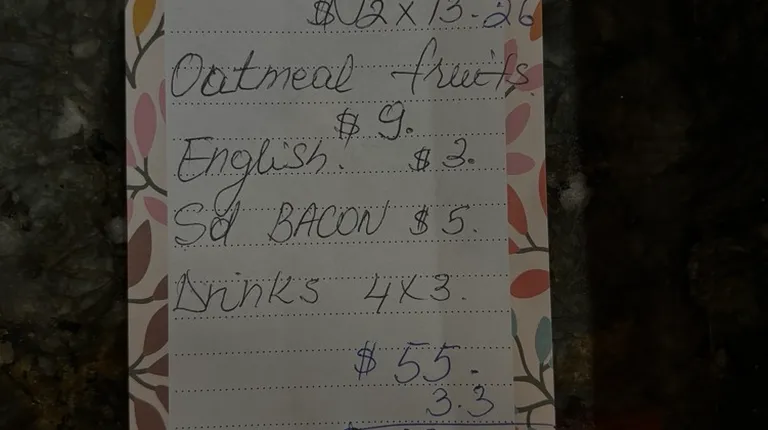 $ 2 x 13. 26
Oatmeal fruits.
$ 9.
English. $ 3.
Sd BACON $ 5.
Drinks 4x3.
$ 55.
3.3